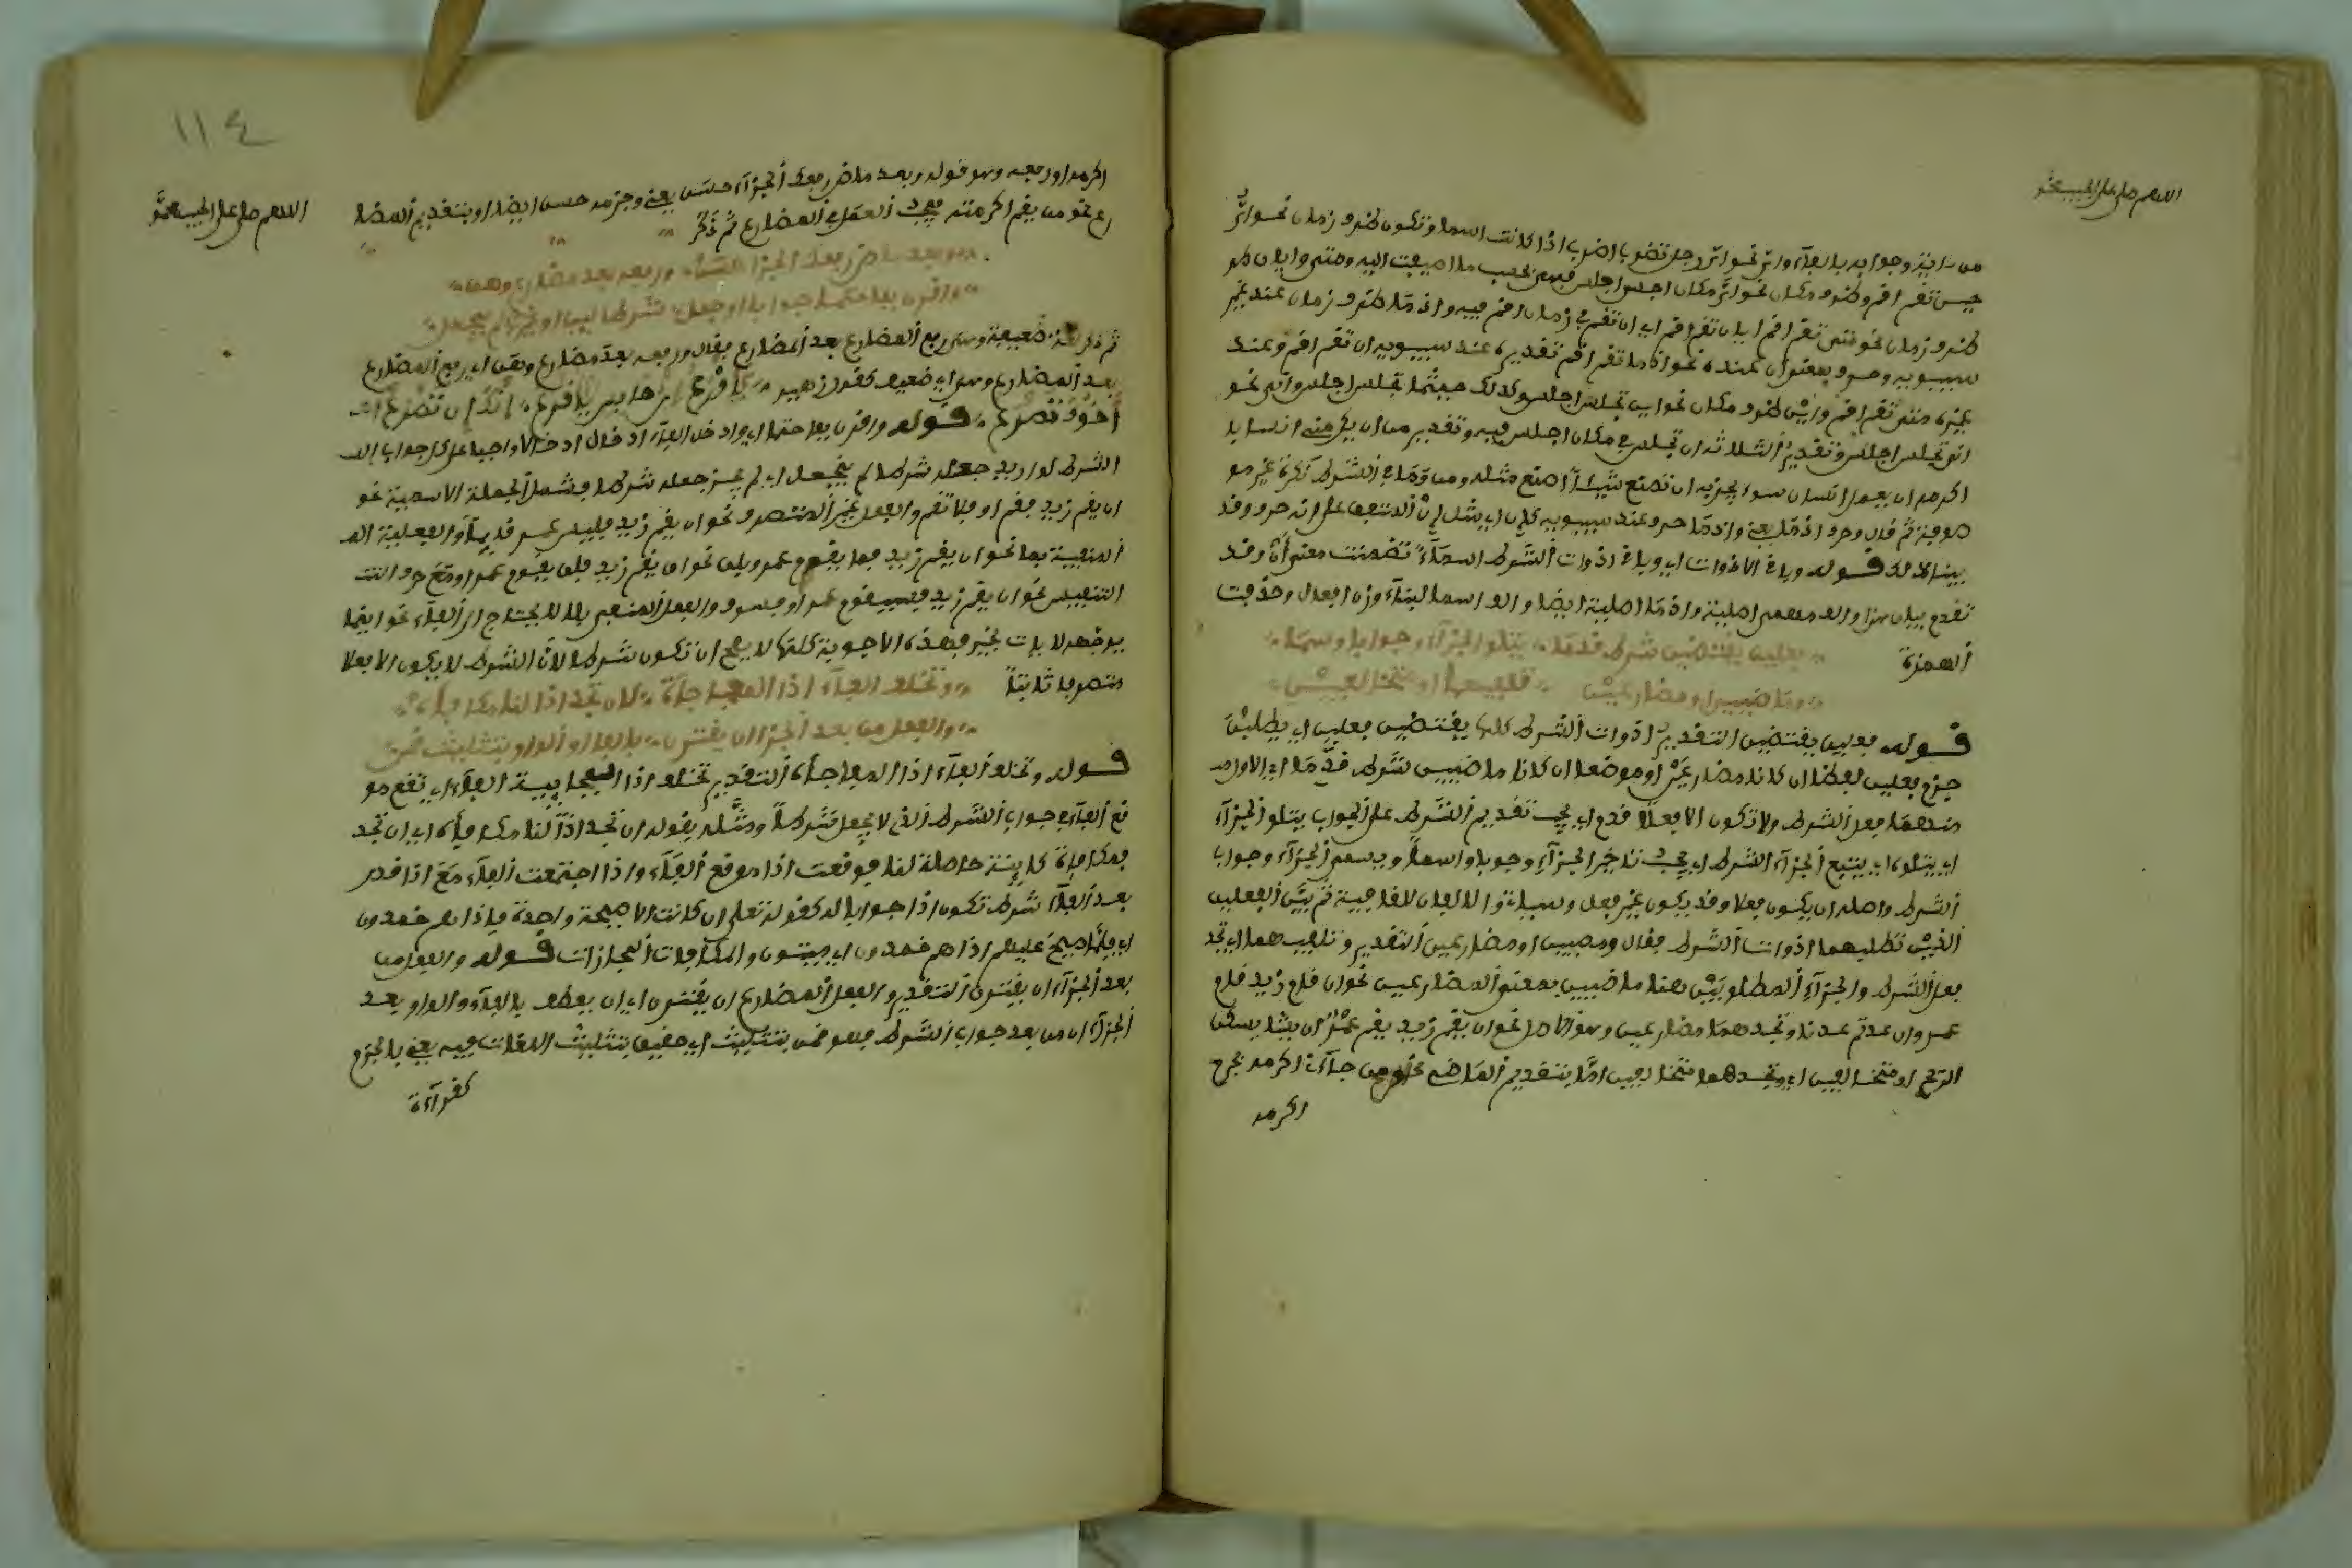 اللهم صل على الحبيب محمد
من رابنى وجوابه بالفاء واي نحو اي رجل تضرب اضرب اذا كانت اسما وتكون ظرف زمان نحو اي
حين تقم اقم وظرف مكان نحو اي مكان اجلس اجلس فهى بحسب ما اضيفت اليه ومتى وايان هو
ظرف زمان نحو متى تقم اقم ايان تقم اقم اي ان تقم في زمان اقم فيه واذما ظرف زمان عند غير
سيبويه وحرف بمعنى ان عنده نحو اذما تقم اقم تقديره عند سيبويه ان تقم اقم وعند
غيره متى تقم اقم واين ظرف مكان نحو اين تجلس اجلس وكذلك حيثما تجلس اجلس وانى نحو
انى تجلس اجلس وتقدير الثلاثة ان تجلس في مكان اجلس فيه وتقدير من ان يكرمنى انسان
اكرمه ان يعمل انسان سوءا يجز به ان تصنع شيئا اصنع مثله ومن وما في الشرط نكرة غير مو
صوفة ثم قال وحرف اذما يعنى واذما حرف عند سيبويه كان اي مثل ان المتفق على انه حرف وقد
بينا ذلك قوله وباقى الادوات اي وباقى ادوات الشرط اسماء تضمنت معنى ان وقد
تقدم بيان هذا والف مهمى اصلية واذما اصلية ايضا والف اسما لبناء وزن افعال وحذفت
الهمزة
فعلين يقتضين شرط قدما يتلو الجزاء وجوابا وسما
وماضيين او مضارعين تلفيهما او متخالفين
قوله فعلين يقتضين التقدير ادوات الشرط كلها يقتضين فعلين اي يطلبن
جزم فعلين لفظا ان كانا مضارعين او موضعا ان كانا ماضيين شرط قدما اي الاول
منهما فعل الشرط ولا تكون الا فعلا قدم اي يجب تقديم الشرط على الجواب يتلو الجزاء
اي يتلوه اي يتبع الجزاء الشرط اي يجب تاخير الجزاء وجوبا واسما ويسمى الجزاء وجواب
الشرط واصله ان يكون فعلا وقد يكون غير فعل وسياتى والالفان للقافية ثم بين الفعلين
الذين تطلبهما ادوات الشرط فقال وماضيين او مضارعين التقدير وتلفيهما اي تجد
فعل الشرط والجزاء المطلوبين هنا ماضيين بمعنى المضارعين نحو ان قام زيد قام
عمرو وان عدتم عدنا وتجدهما مضارعين وهو الاصل نحو ان يقم زيد يقم عمرو ان يشا يسكن
الريح او متخالفين اي وتجدهما متخالفين اما بتقديم الماضى نحو من جاءنى اكرمه بجزم
اكرمه
١١٤
اللهم صل على الحبيب محمد
اكرمه او رفعه وهو قوله وبعد ماض رفعك الجزاء حسن يعنى وجزمه حسن ايضا او بتقديم المضا
رع نحو من يقم اكرمته فيجب العمل في المضارع ثم ذكر
وبعد ماض رفعك الجزا حسن ورفعه بعد مضارع وهن
واقرن بفا حتما جوابا لو جعل شرطا لان او غيرها لم ينجعل
ثم ذكر لغة ضعيفة وهى رفع المضارع بعد المضارع فقال ورفعه بعد مضارع وهن اي رفع المضارع
بعد المضارع وهن اي ضعيف كقول زهير يا اقرع بن حابس يا اقرع انك ان تصرع
اخوك تصرع قوله واقرن بفا حتما اي وادخل الفاء ادخالا واجبا على كل جواب
الشرط لو اريد جعله شرطا لم ينجعل اي لم يجز جعله شرطا فشمل الجملة الاسمية نحو
ان يقم زيد فقم او فلا تقم والفعل غير المتصرف نحو ان يقم زيد فليس عمرو قائما والفعلية
المنفية بما نحو ان يقم زيد فما يقوم عمرو وبلن نحو ان يقم زيد فلن يقوم عمرو او مع حرف التنـ
التنفيس نحو ان يقم زيد فسيقوم عمرو او فسوف والفعل المنفي بلا لا يحتاج الى الفاء نحو اينما
يوجهه لا يات بخير فهذه الاجوبة كلها لا يصح ان تكون شرطا لان الشرط لا يكون الا فعلا
متصرفا ثابتا
وتخلف الفاء اذا المفاجاة كان تجد اذا لنا مكافاة
والفعل من بعد الجزا ان يقترن بالفا او الواو بتثليث قمن
قوله وتخلف الفاء اذا المفاجاة التقدير تخلف اذا الفجاية الفاء اي تقع مو
قع الفاء في جواب الشرط الذي لا يجعل شرطا ومثله بقوله ان تجد اذا لنا مكافاة اي ان تجد
فمكافاة كاينة حاصلة لنا فوقعت اذا موقع الفاء واذا اجتمعت الفاء مع اذا قدر
بعد الفاء شرط تكون اذا جوابا له كقوله تعلى ان كانت الا صيحة واحدة فاذا هم خمدون
اي فلما صيح عليهم اذا هم خمدون اي ميتون والمكافات المجازات قوله والفعل من
بعد الجزاء ان يقترن التقدير والفعل المضارع ان يقترن اي ان يعطف بالفاء والواو بعد
الجزاء ان من بعد جواب الشرط فهو قمن بتثليث اي حقيق بتثليث اللغات فيه يعنى بالجزم
كقراءة